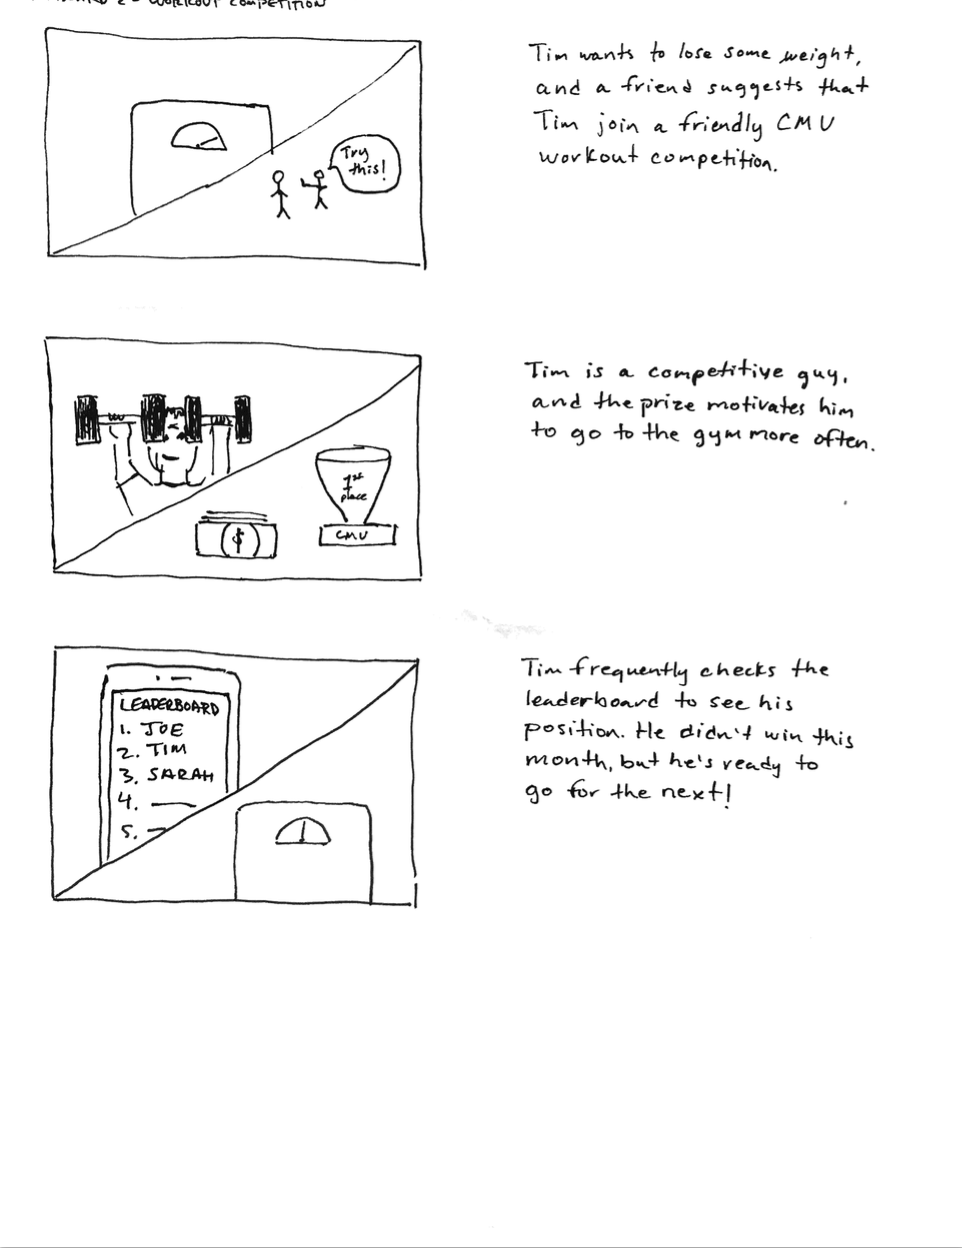 2 - WORKOUT COMPETITION
Try
this!
Tim wants to lose some weight,
and a friend suggests that
Tim join a friendly CMU
workout competition.
1st
place
$
CMU
Tim is a competitive guy,
and the prize motivates him
to go to the gym more often.
LEADERBOARD
1. JOE
2. TIM
3. SARAH
4.
5.
Tim frequently checks the
leaderboard to see his
position. He didn't win this
month, but he's ready to
go for the next!